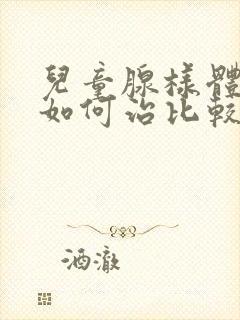 兒童腺樣體
如何治比較
酒澈